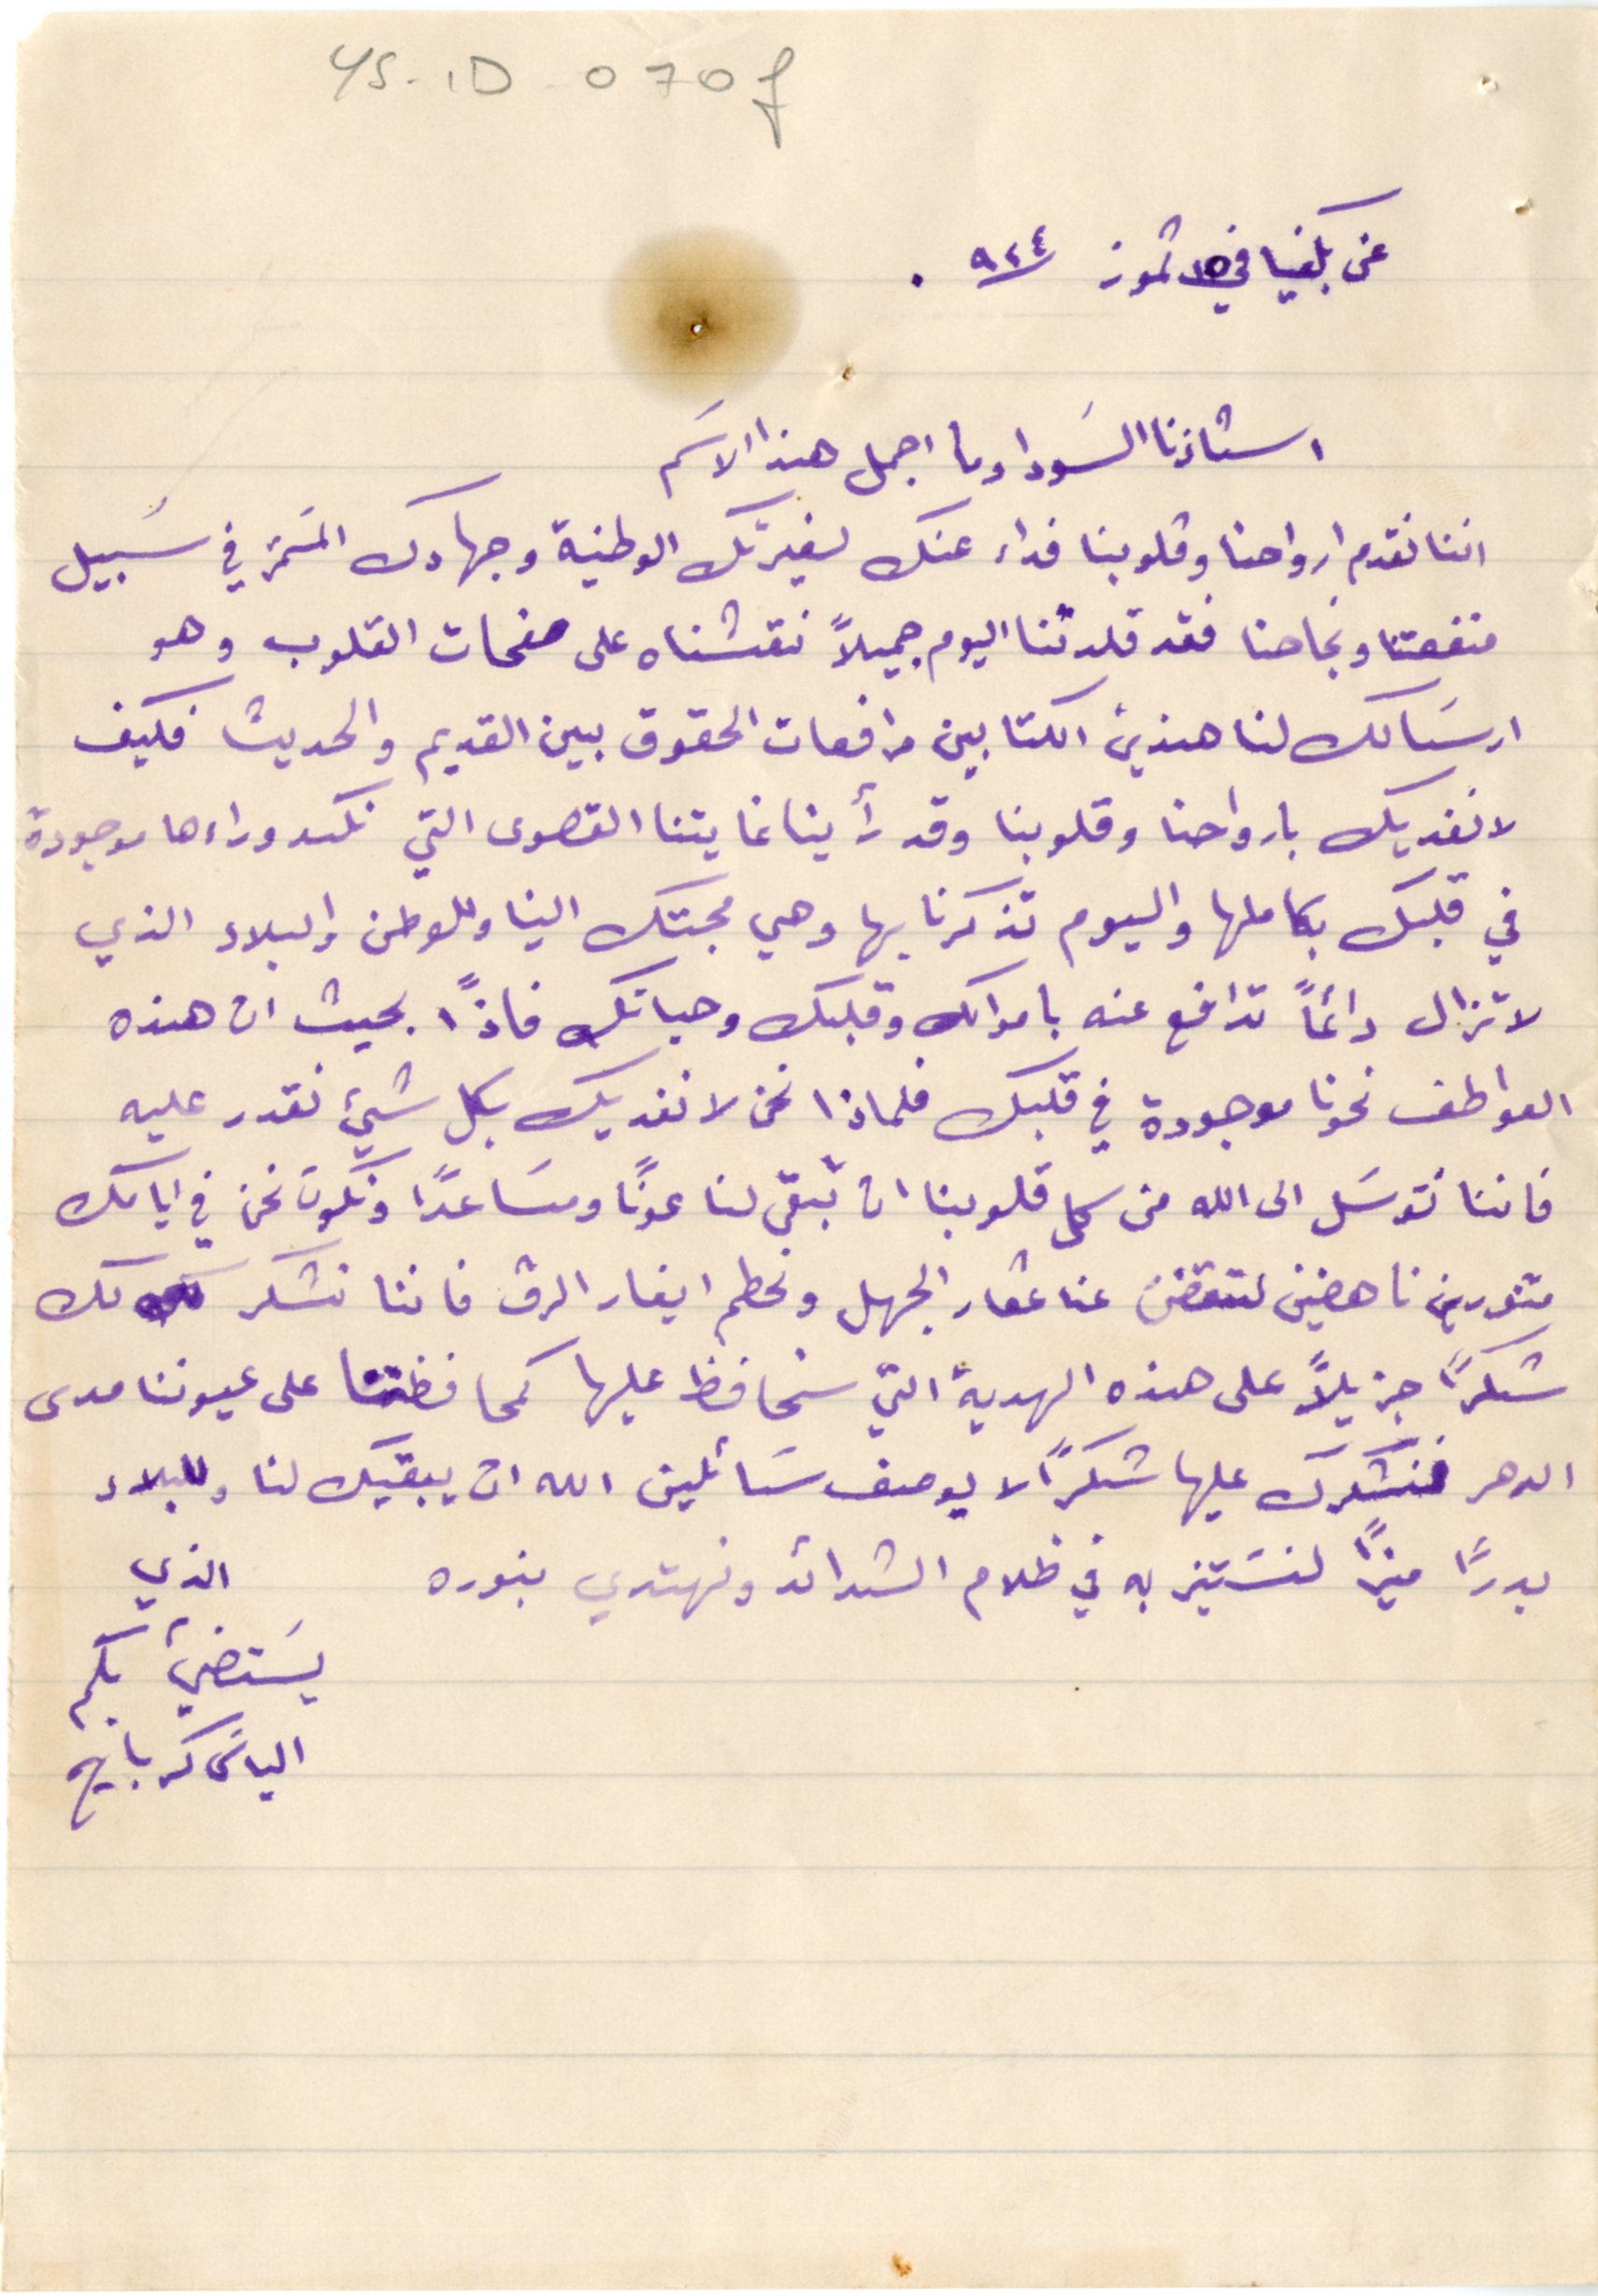 YS-1D-070f
عن بكفيا في 15 تموز ٩٢٤ .
استاذنا السودا وما اجمل هذا الاسم
اننا نقدم ارواحنا وقلوبنا فداء عنك لغيرتك الوطنية وجهادك المستمر في سبيل
منفعتنا ونجاحنا فقد قلدتنا اليوم جميلاً نقشناه على صفحات القلوب وهو
ارسالك لنا هذين الكتابين مرافعات الحقوق بين القديم والحديث فكيف
لا نفديك بارواحنا وقلوبنا وقد رأينا غايتنا القصوى التي نكد وراءها موجودة
في قلبك بكاملها واليوم تذكرنا بها وهي محبتك الينا وللوطن والبلاد الذي
لا تزال دائماً تدافع عنه باموالك وقلبك وحياتك فاذاً بحيث ان هذه
العواطف نحونا موجودة في قلبك فلماذا نحن لا نفديك بكل شيء نقدر عليه
فاننا نتوسل الى الله من كل قلوبنا ان تبقى لنا عونًا ومساعدًا ونكون نحن في ايامك
متنورين ناهضين لننفض عنا غبار الجهل ونحطم انيار الرق فاننا نشكر لك
شكرًا جزيلاً على هذه الهدية التي سنحافظ عليها كمحافظتنا على عيوننا مدى
الدهر فنشكرك عليها شكرًا لا يوصف سائلين الله ان يبقيك لنا وللبلاد
بدرًا منيرًا لنستنير به في ظلام الشدائد ونهتدي بنوره الذي
يستضيء بكم
الياس كرباج